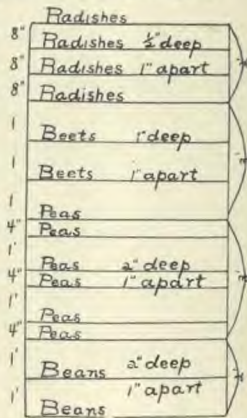 Radishes
8" Radishes ½" deep
8" Radishes 1" apart
8" Radishes
1
Beets 1" deep
1
Beets 1" apart
1
Peas
4" Peas
1'
Peas 2" deep
4" Peas 1" apart
1'
Peas
4" Peas
1' 2" deep
Beans
1' 1" apart
Beans